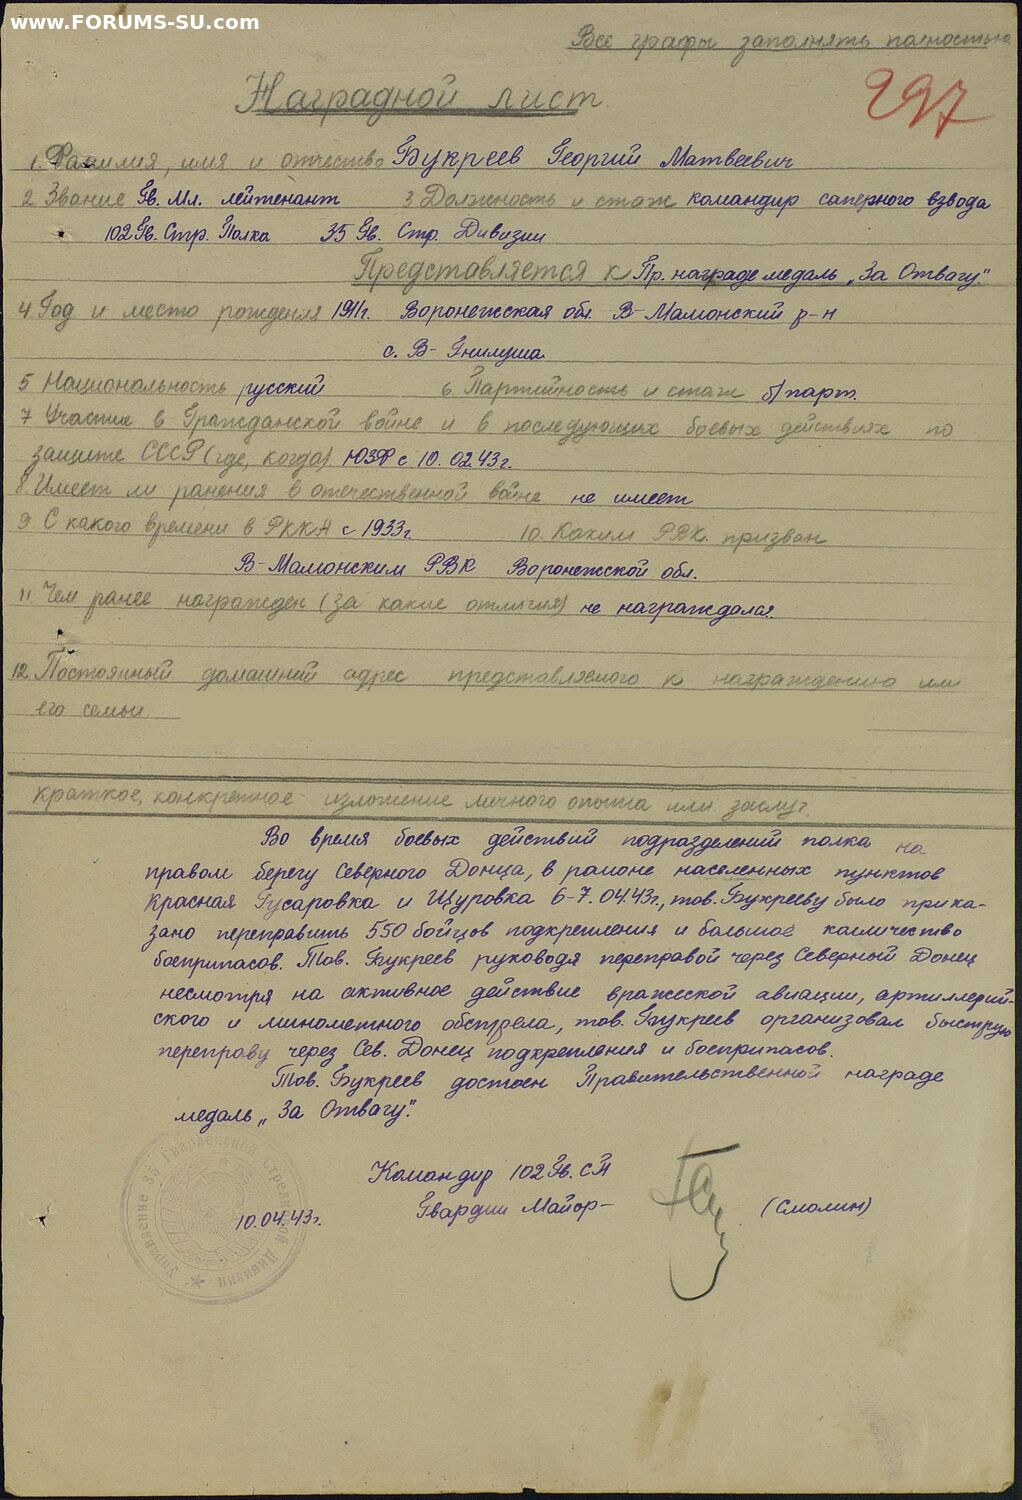 www.FORUMS-SU.com
Все графы заполнять полностью
297
Наградной лист.
1. Фамилия, имя и отчество Букреев Георгий Матвеевич
2. Звание Гв. Мл. лейтенант 3 Должность и стаж командир саперного взвода
102 Гв. Стр. Полка 35 Гв. Стр. Дивизии
Представляется к Пр. награде медаль „За Отвагу".
4. Год и место рождения 1911г. Воронежская обл. В-Мамонский р-н
с. В- Гнилуша.
5 Национальность русский 6. Партийность и стаж б/парт.
7 Участие в Гражданской войне и в последующих боевых действиях по
защите СССР (где, когда) ЮЗФ с 10.02.43г.
8. Имеет ли ранения в отечественной войне не имеет
9. С какого времени в РККА с 1933г. 10. Каким РВК. призван
В-Мамонским РВК Воронежской обл.
11. Чем ранее награжден (за какие отличия) не награждался.
12. Постоянный домашний адрес представляемого к награждению или
его семьи.
краткое, конкретное изложение личного опыта или заслуг.
Во время боевых действий подразделений полка на
правом берегу Северного Донца, в районе населенных пунктов
Красная Гусаровка и Щуровка 6-7.04.43г., тов. Букрееву было прика-
зано переправить 550 бойцов подкрепления и большое количество
боеприпасов. Тов. Букреев руководя переправой через Северный Донец
несмотря на активное действие вражеской авиации, артиллерий-
ского и минометного обстрела, тов. Букреев организовал быструю
переправу через Сев. Донец подкрепления и боеприпасов.
Тов. Букреев достоен Правительственной награде
медаль „За Отвагу".
Управление 35 Гвардейской Стрелковой Дивизии
Командир 102 Гв. СП
10.04.43г. Гвардии Майор- (Смолин)